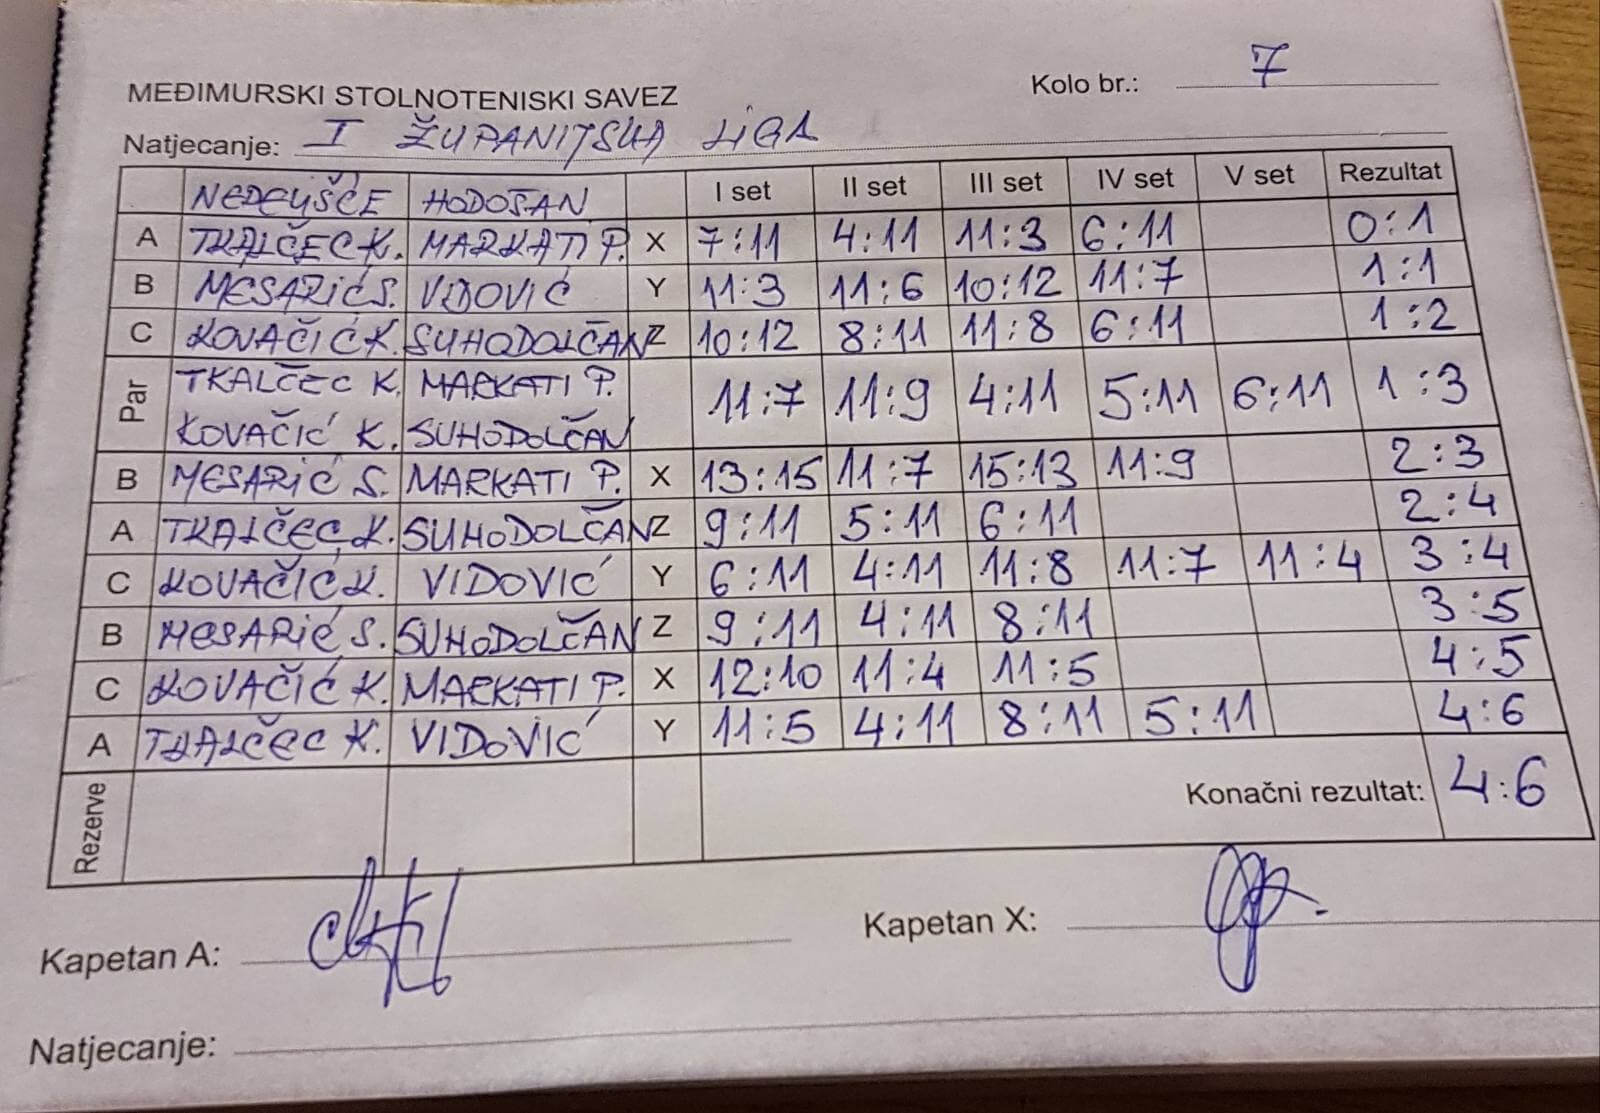 MEĐIMURSKI STOLNOTENISKI SAVEZ Kolo br.: 7
Natjecanje: I ŽUPANIJSKA LIGA
NEDELIŠĆE HODOŠAN I set II set III set IV set V set Rezultat
A TKALČEC K. MARKATI P. X 7:11 4:11 11:3 6:11 0:1
B MESARIĆ S. VIDOVIĆ Y 11:3 11:6 10:12 11:7 1:1
C KOVAČIĆ K. SUHODOLČAN Z 10:12 8:11 11:8 6:11 1:2
Par TKALČEC K. MARKATI P. 11:7 11:9 4:11 5:11 6:11 1:3
KOVAČIĆ K. SUHODOLČAN
B MESARIĆ S. MARKATI P. X 13:15 11:7 15:13 11:9 2:3
A TKALČEC K. SUHODOLČAN Z 9:11 5:11 6:11 2:4
C KOVAČIĆ K. VIDOVIĆ Y 6:11 4:11 11:8 11:7 11:4 3:4
B MESARIĆ S. SUHODOLČAN Z 9:11 4:11 8:11 3:5
C KOVAČIĆ K. MARKATI P. X 12:10 11:4 11:5 4:5
A TKALČEC K. VIDOVIĆ Y 11:5 4:11 8:11 5:11 4:6
Rezerve Konačni rezultat: 4:6
Kapetan A: Kapetan X:
Natjecanje: